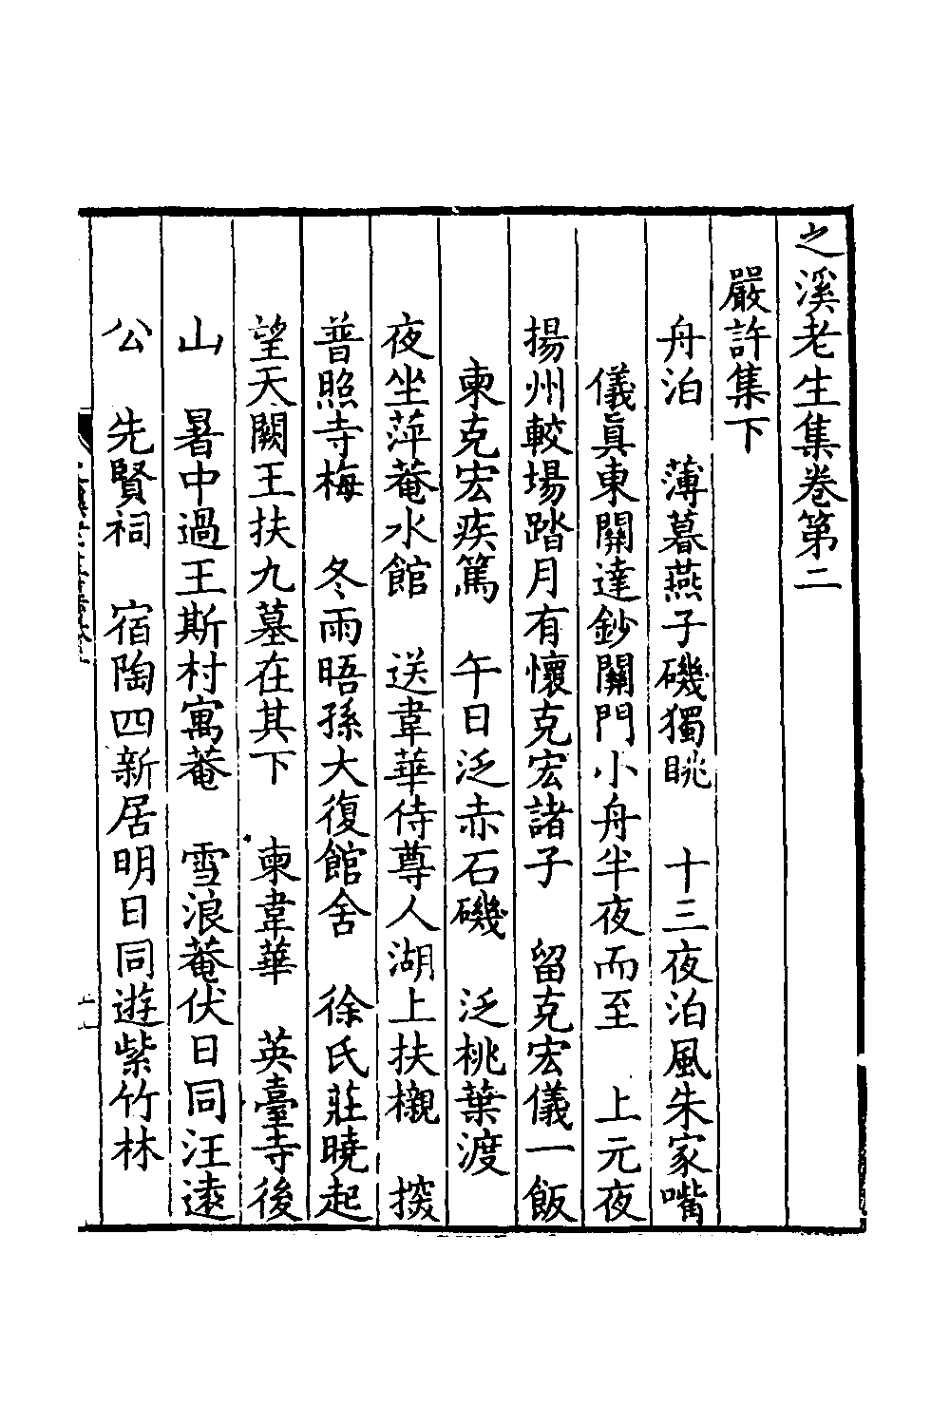 之溪老生集卷第二
嚴許集下
舟泊　薄暮燕子磯獨眺　十三夜泊風朱家嘴
儀眞東關達鈔關門小舟半夜而至　上元夜
揚州較場踏月有懷克宏諸子　留克宏儀一飯
柬克宏疾篤　午日泛赤石磯　泛桃葉渡
夜坐萍菴水館　送韋華侍尊人湖上扶櫬　
普照寺梅　冬雨晤孫大復館舍　徐氏莊曉起
望天闕王扶九墓在其下　柬韋華　英臺寺後
山　暑中過王斯村寓菴　雪浪菴伏日同汪遠
公　先賢祠　宿陶四新居明日同遊紫竹林